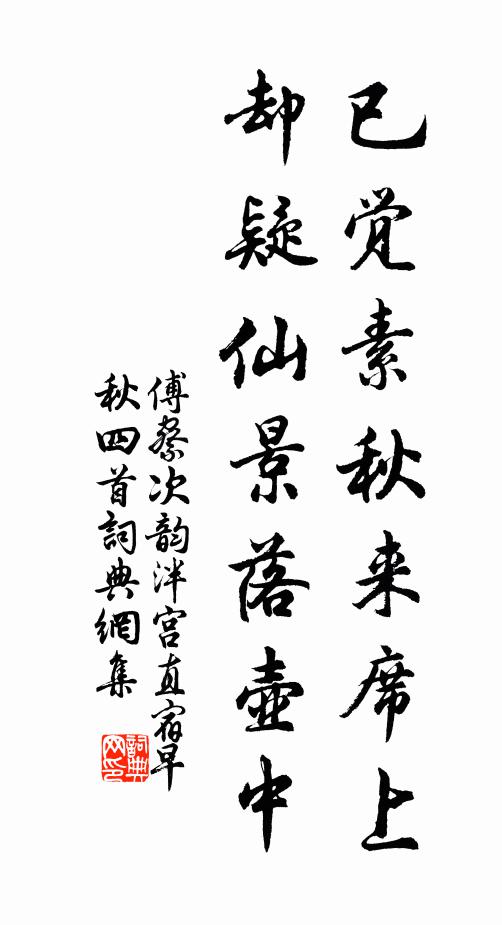 已觉素秋来席上
却疑仙景落壶中
傅察次韵泮宫直宿早
秋四首詞典網集
詞典
网印